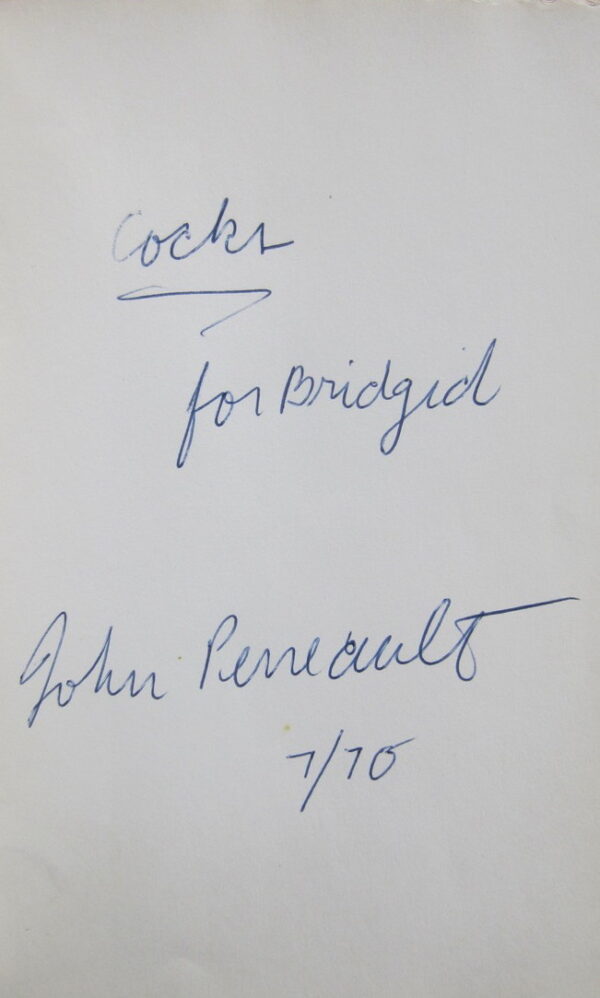 Cocks
for Bridgid
John Perreault
7/70